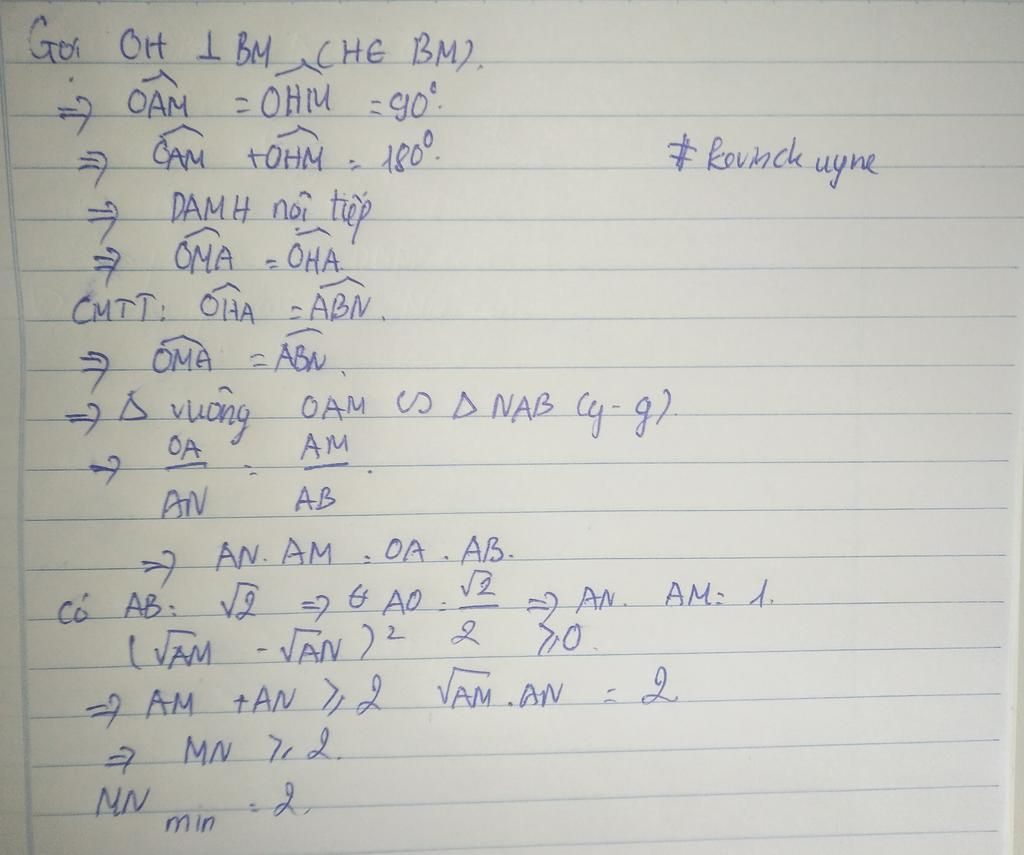 Gọi OH ⊥ BM (H∈ BM).
=> OAM = OHM = 90°.
=> OAM + OHM = 180°.
# kevinck uyne
=> OAMH nội tiếp
=> OMA = OHA
CMTT: OHA = ABN.
=> OMA = ABN.
=> Δ vuông OAM ∽ Δ NAB (g-g).
=> OA/AN = AM/AB.
=> AN. AM = OA. AB.
Có AB = √2 => AO = √2/2 => AN. AM = 1.
(√AM - √AN)² ≥ 0.
=> AM + AN ≥ 2 √AM.AN = 2
=> MN ≥ 2.
MN min = 2.